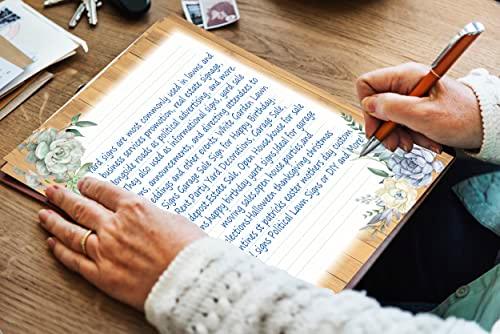 d signs are most commonly used in lawns and
business services promotion, real estate signage,
alongside roads as political advertising, and more
They also used in informational signs, yard sale
announcements and directing attendees to
eddings and other events. White Garden Lawn
Signs Garage Sale Sign for Happy Birthday,
Rent,Party Yard Decorations Garage Sale,
depot,Estate Sale, Open House, house for sale
s,happy birthday yard signs,ideal for garage
moving sales,open house,parties,and
elections.Halloween thanksgiving christmas
ntines st patricks easter mothers day custom
signs Political Lawn Signs or DIY and More